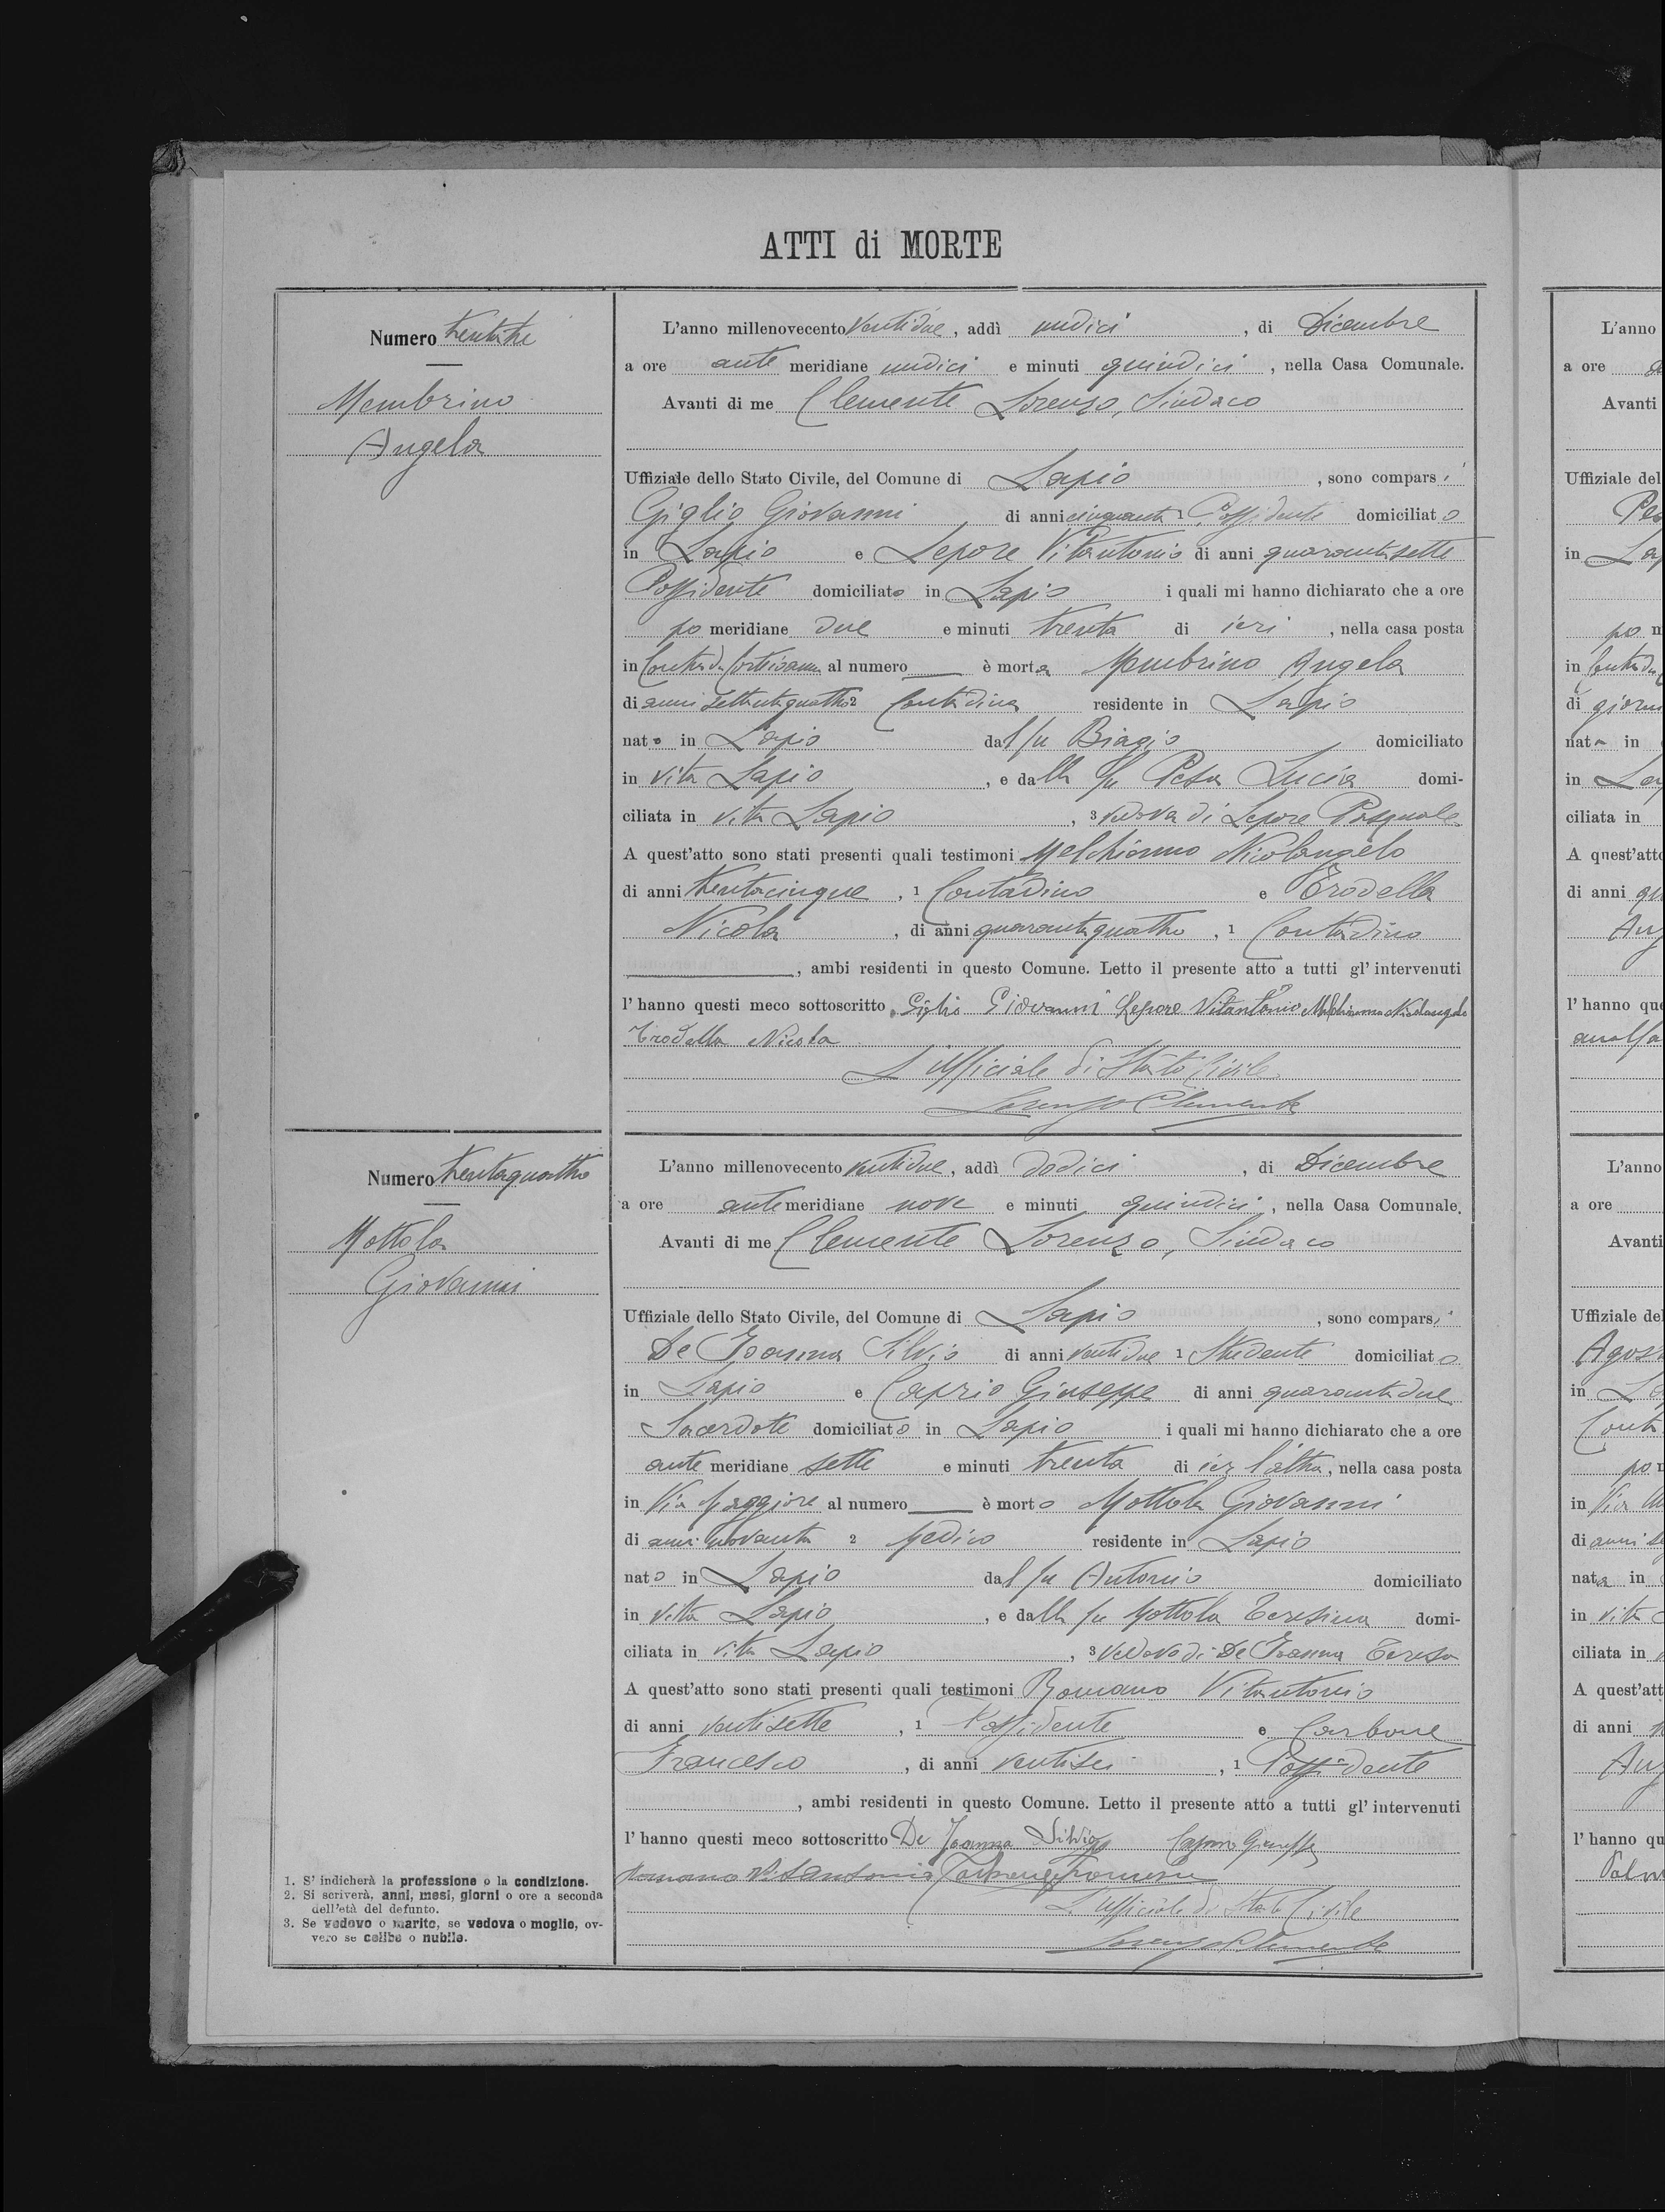 ATTI di MORTE
Numero trentatre
Membrino
Angela
L'anno millenovecento ventidue, addì undici, di Dicembre
a ore ante meridiane undici e minuti quindici, nella Casa Comunale.
Avanti di me Clemente Lorenzo, Sindaco
Uffiziale dello Stato Civile, del Comune di Lapio, sono comparsi
Giglio Giovanni, di anni cinquanta 1 Possidente domiciliato
in Lapio e Lepore Vitantonio di anni quarantasette
Possidente domiciliato in Lapio i quali mi hanno dichiarato che a ore
po meridiane due e minuti trenta di ieri, nella casa posta
in Contrada al numero è morta Membrino Angela
di anni settantaquattro 2 Contadina residente in Lapio
nata in Lapio dal fu Biagio domiciliato
in vita Lapio, e dalla fu Lucia domi-
ciliata in vita Lapio, 3 vedova di Lepore Pasquale
A quest'atto sono stati presenti quali testimoni Melchionno Nicolangelo
di anni trentacinque, 1 Contadino e Trodella
Nicola, di anni quarantaquattro, 1 Contadino
, ambi residenti in questo Comune. Letto il presente atto a tutti gl' intervenuti
l' hanno questi meco sottoscritto Giglio Giovanni Lepore Vitantonio Melchionno Nicolangelo
Trodella Nicola
L'Ufficiale di Stato Civile
Lorenzo Clemente
Numero trentaquattro
Mottola
Giovanni
L'anno millenovecento ventidue, addì dodici, di Dicembre
a ore ante meridiane nove e minuti quindici, nella Casa Comunale.
Avanti di me Clemente Lorenzo, Sindaco
Uffiziale dello Stato Civile, del Comune di Lapio, sono comparsi
De Joanna Silvio di anni ventidue 1 Studente domiciliato
in Lapio e Caprio Giuseppe di anni quarantadue
Sacerdote domiciliato in Lapio i quali mi hanno dichiarato che a ore
ante meridiane sette e minuti trenta di ier l'altro, nella casa posta
in Via Maggiore al numero è morto Mottola Giovanni
di anni novanta 2 Medico residente in Lapio
nato in Lapio dal fu Antonio domiciliato
in vita Lapio, e dalla fu Mottola Teresina domi-
ciliata in vita Lapio, 3 vedovo di De Joanna Teresa
A quest'atto sono stati presenti quali testimoni Romano Vitantonio
di anni ventisette, 1 Possidente e Carbone
Francesco, di anni ventisei, 1 Possidente
, ambi residenti in questo Comune. Letto il presente atto a tutti gl' intervenuti
l' hanno questi meco sottoscritto De Joanna Silvio Caprio Giuseppe
Romano Vitantonio Carbone Francesco
L'Ufficiale di Stato Civile
Lorenzo Clemente
1. S' indicherà la professione o la condizione.
2. Si scriverà, anni, mesi, giorni o ore a seconda
dell'età del defunto.
3. Se vedovo o marito, se vedova o moglie, ov-
vero se celibe o nubile.
L'anno
a ore
Avanti
Uffiziale del
in
po
in
di giorni
nata in
in
ciliata in
A quest'atto
di anni
l' hanno que
L'anno
a ore
Avanti
Uffiziale del
in
po
in Via
di anni
nata in
in vita
ciliata in
A quest'att
di anni
l' hanno qu